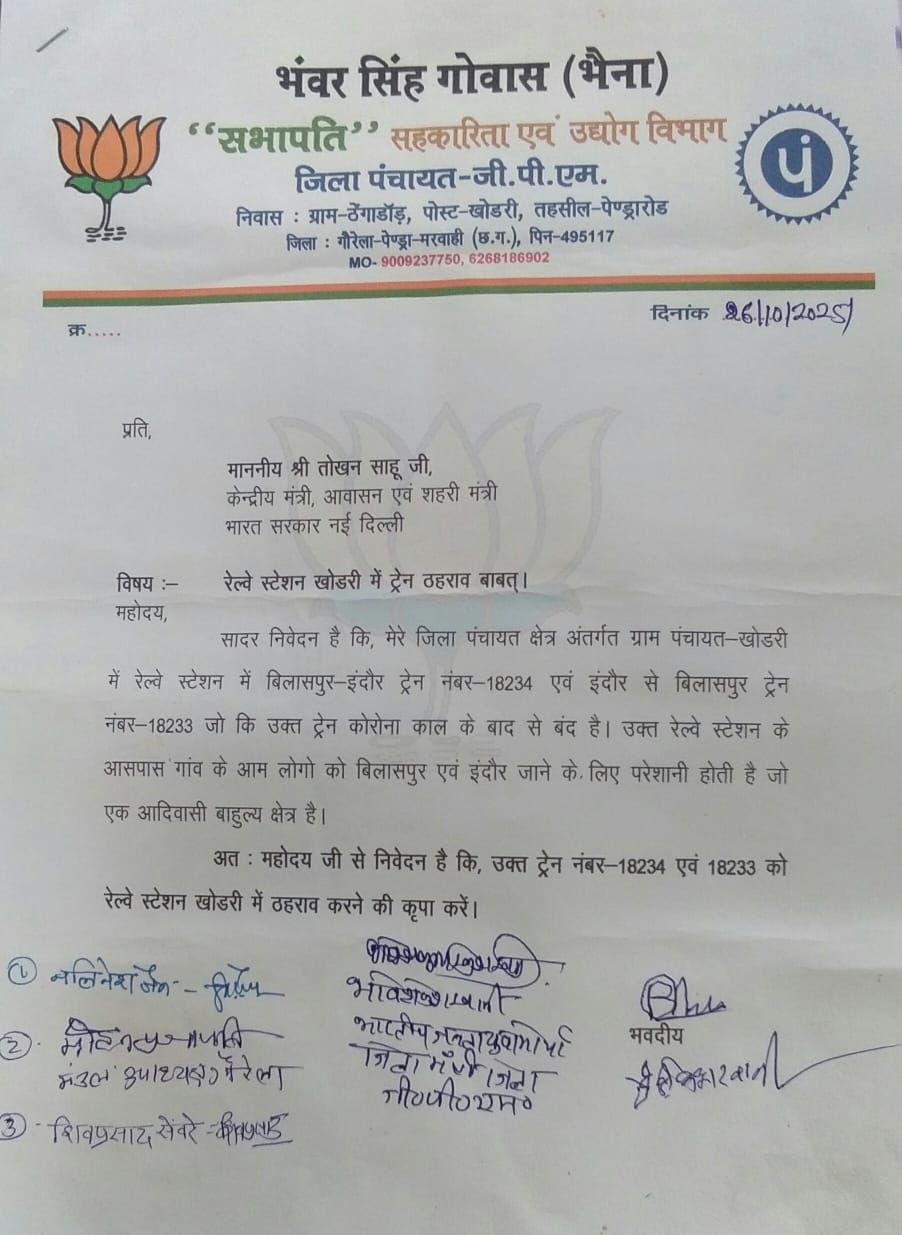 भंवर सिंह गोवास (भैना)
“सभापति” सहकारिता एवं उद्योग विभाग
जिला पंचायत-जी.पी.एम.
निवास : ग्राम-ठेंगाडॉड़, पोस्ट-खोडरी, तहसील-पेण्ड्रारोड
जिला : गौरेला-पेण्ड्रा-मरवाही (छ.ग.), पिन-495117
MO- 9009237750, 6268186902
पं
क्र.....
दिनांक 26/10/2025
प्रति,
माननीय श्री तोखन साहू जी,
केन्द्रीय मंत्री, आवासन एवं शहरी मंत्री
भारत सरकार नई दिल्ली
विषय :– रेल्वे स्टेशन खोडरी में ट्रेन ठहराव बाबत्।
महोदय,
सादर निवेदन है कि, मेरे जिला पंचायत क्षेत्र अंतर्गत ग्राम पंचायत–खोडरी
में रेल्वे स्टेशन में बिलासपुर–इंदौर ट्रेन नंबर–18234 एवं इंदौर से बिलासपुर ट्रेन
नंबर–18233 जो कि उक्त ट्रेन कोरोना काल के बाद से बंद है। उक्त रेल्वे स्टेशन के
आसपास गांव के आम लोगो को बिलासपुर एवं इंदौर जाने के लिए परेशानी होती है जो
एक आदिवासी बाहुल्य क्षेत्र है।
अत : महोदय जी से निवेदन है कि, उक्त ट्रेन नंबर–18234 एवं 18233 को
रेल्वे स्टेशन खोडरी में ठहराव करने की कृपा करें।
① नलिनेश जैन -
②
मंडल उपाध्यक्ष गौरेला
③ शिवप्रसाद सेंवरे -
भारतीय जनता युवा मोर्चा
जिला मंत्री जिला
जी०पी०एम०
भवदीय